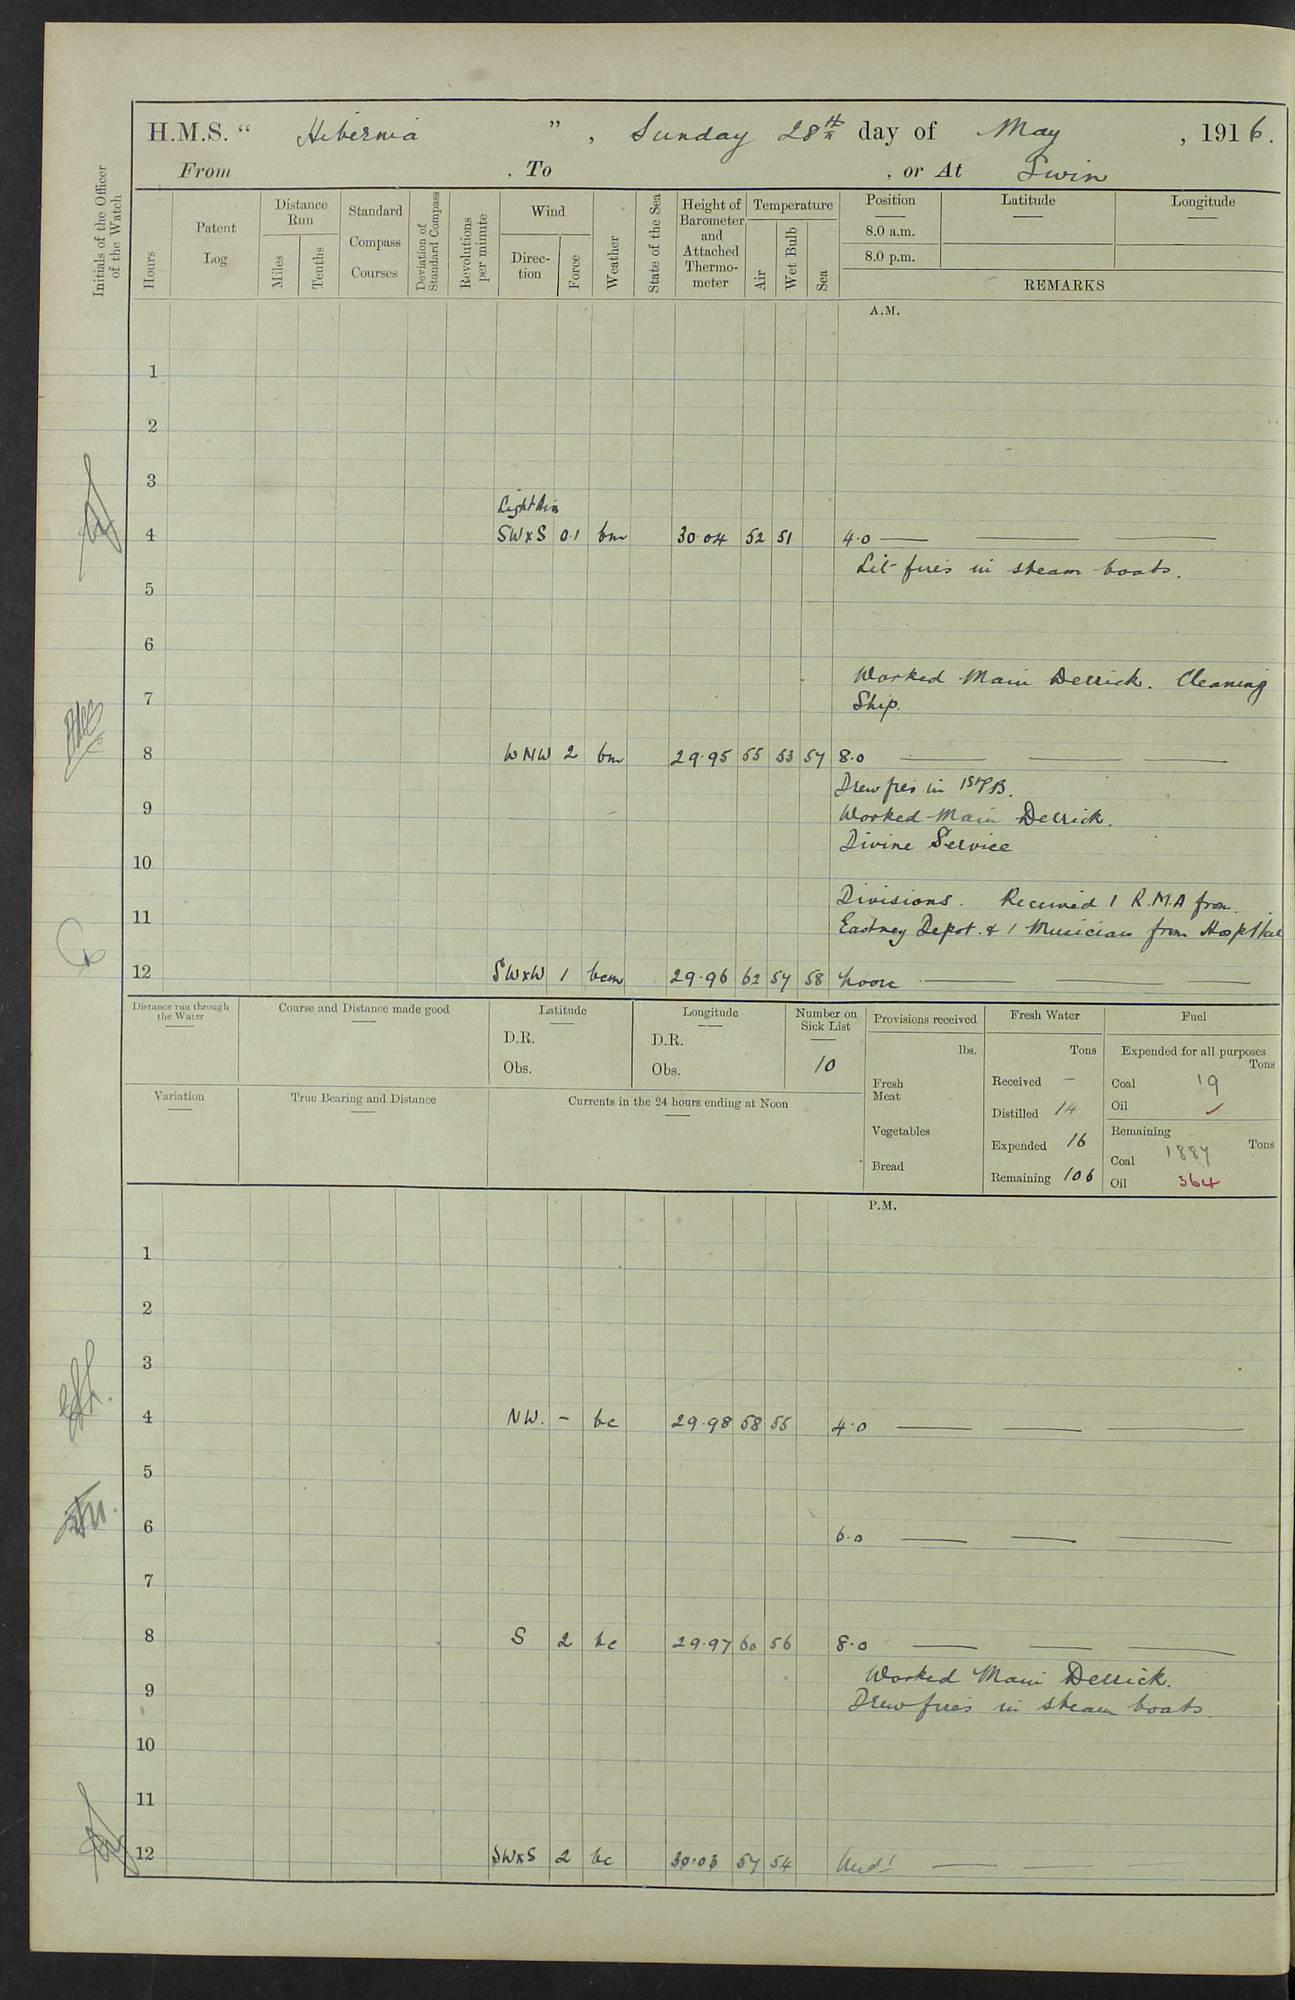 H.M.S. “ Hibernia ” , Sunday 28th day of May , 1916.
From , To , or At Swin
Initials of the Officer of the Watch
Hours
Patent Log
Distance Run
Miles
Tenths
Standard Compass Courses
Deviation of Standard Compass
Revolutions per minute
Wind
Direc-tion
Force
Weather
State of the Sea
Height of Barometer and Attached Thermo-meter
Temperature
Air
Wet Bulb
Sea
Position
8.0 a.m.
8.0 p.m.
Latitude
Longitude
REMARKS
A.M.
1
2
3
Light Airs
4 SWxS 0.1 bm 30.04 52 51 4.0 — — —
Lit fires in steam boats.
5
6
Worked Main Derrick. Cleaning
7 Ship.
8 WNW 2 bm 29.95 55 53 57 8.0 — — —
Drew fires in 1st P.B.
9 Worked Main Derrick.
Divine Service
10
Divisions. Received 1 R.M.A from
11 Eastney Depot. & 1 Musician from Hospital
12 SWxW 1 bcm 29.96 62 57 58 Noon — — —
Distance run through the Water
Course and Distance made good
Latitude
D.R.
Obs.
Longitude
D.R.
Obs.
Number on Sick List
10
Provisions received
lbs.
Fresh Meat
Vegetables
Bread
Fresh Water
Tons
Received –
Distilled 14
Expended 16
Remaining 106
Fuel
Expended for all purposes
Tons
Coal 19
Oil ✓
Remaining
Tons
Coal 1887
Oil 364
Variation
True Bearing and Distance
Currents in the 24 hours ending at Noon
P.M.
1
2
3
4 NW. – bc 29.98 58 55 4.0 — — —
5
6 6.0 — — —
7
8 S 2 bc 29.97 60 56 8.0 — — —
Worked Main Derrick.
9 Drew fires in steam boats.
10
11
12 SWxS 2 bc 30.03 57 54 Midt — — —